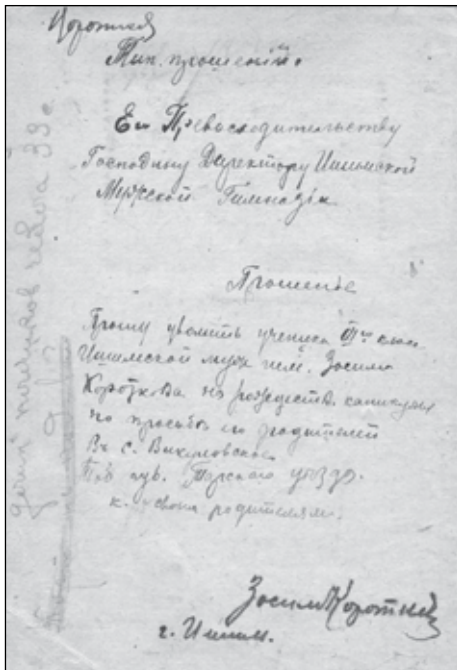 Короткий
Тип. прошеній.
Его Превосходительству
Господину Директору Ишимской
Мужской Гимназіи
Прошенье
Прошу уволить ученика класс
Ишимской муж. гим. Зосима
Короткова на рождеств. каникулы
по просьбе его родителей
Въ с. Викуловское
Тоб. губ. Тарскаго уѣзда.
к своим родителям.
Зосим Короткий
г. Ишим.